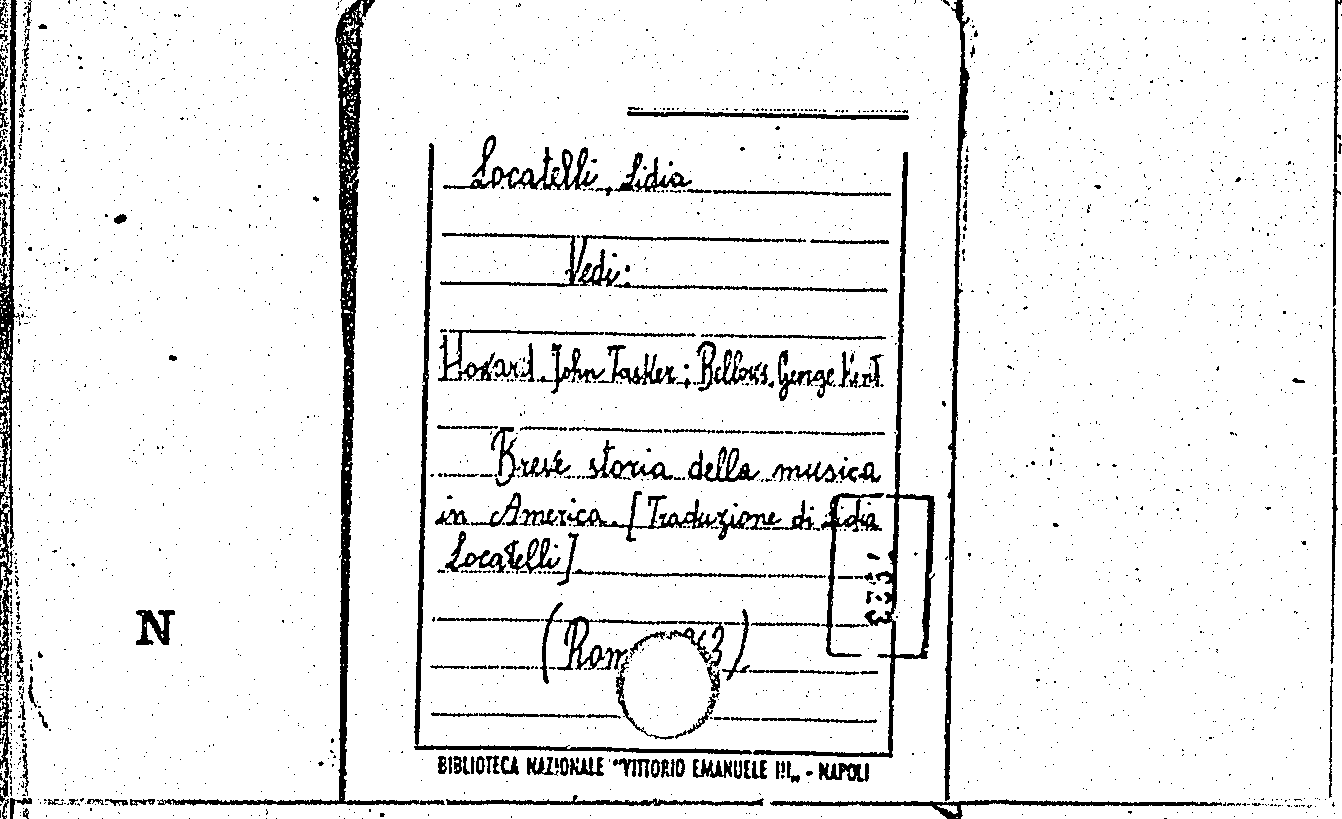 Locatelli, Lidia
Vedi:
Howard, John Tasker; Bellows, George Kent
Breve storia della musica
in America. [Traduzione di Lidia
Locatelli]
N
BIBLIOTECA NAZIONALE "VITTORIO EMANUELE III„ - NAPOLI